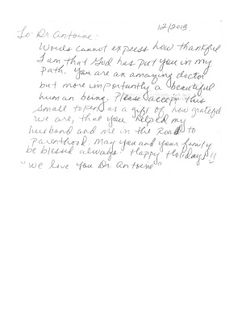 12/2013
To: Dr. Antoine-
Words cannot express how thankful
I am that God has put you in my
path. You are an amazing doctor
but more importantly a beautiful
human being. Please accept this
small token as a gift of how grateful
we are, that you helped my
husband and me in the Road to
parenthood. May you and your family
be blessed always Happy Holidays!!
"We love you Dr. Antoine"